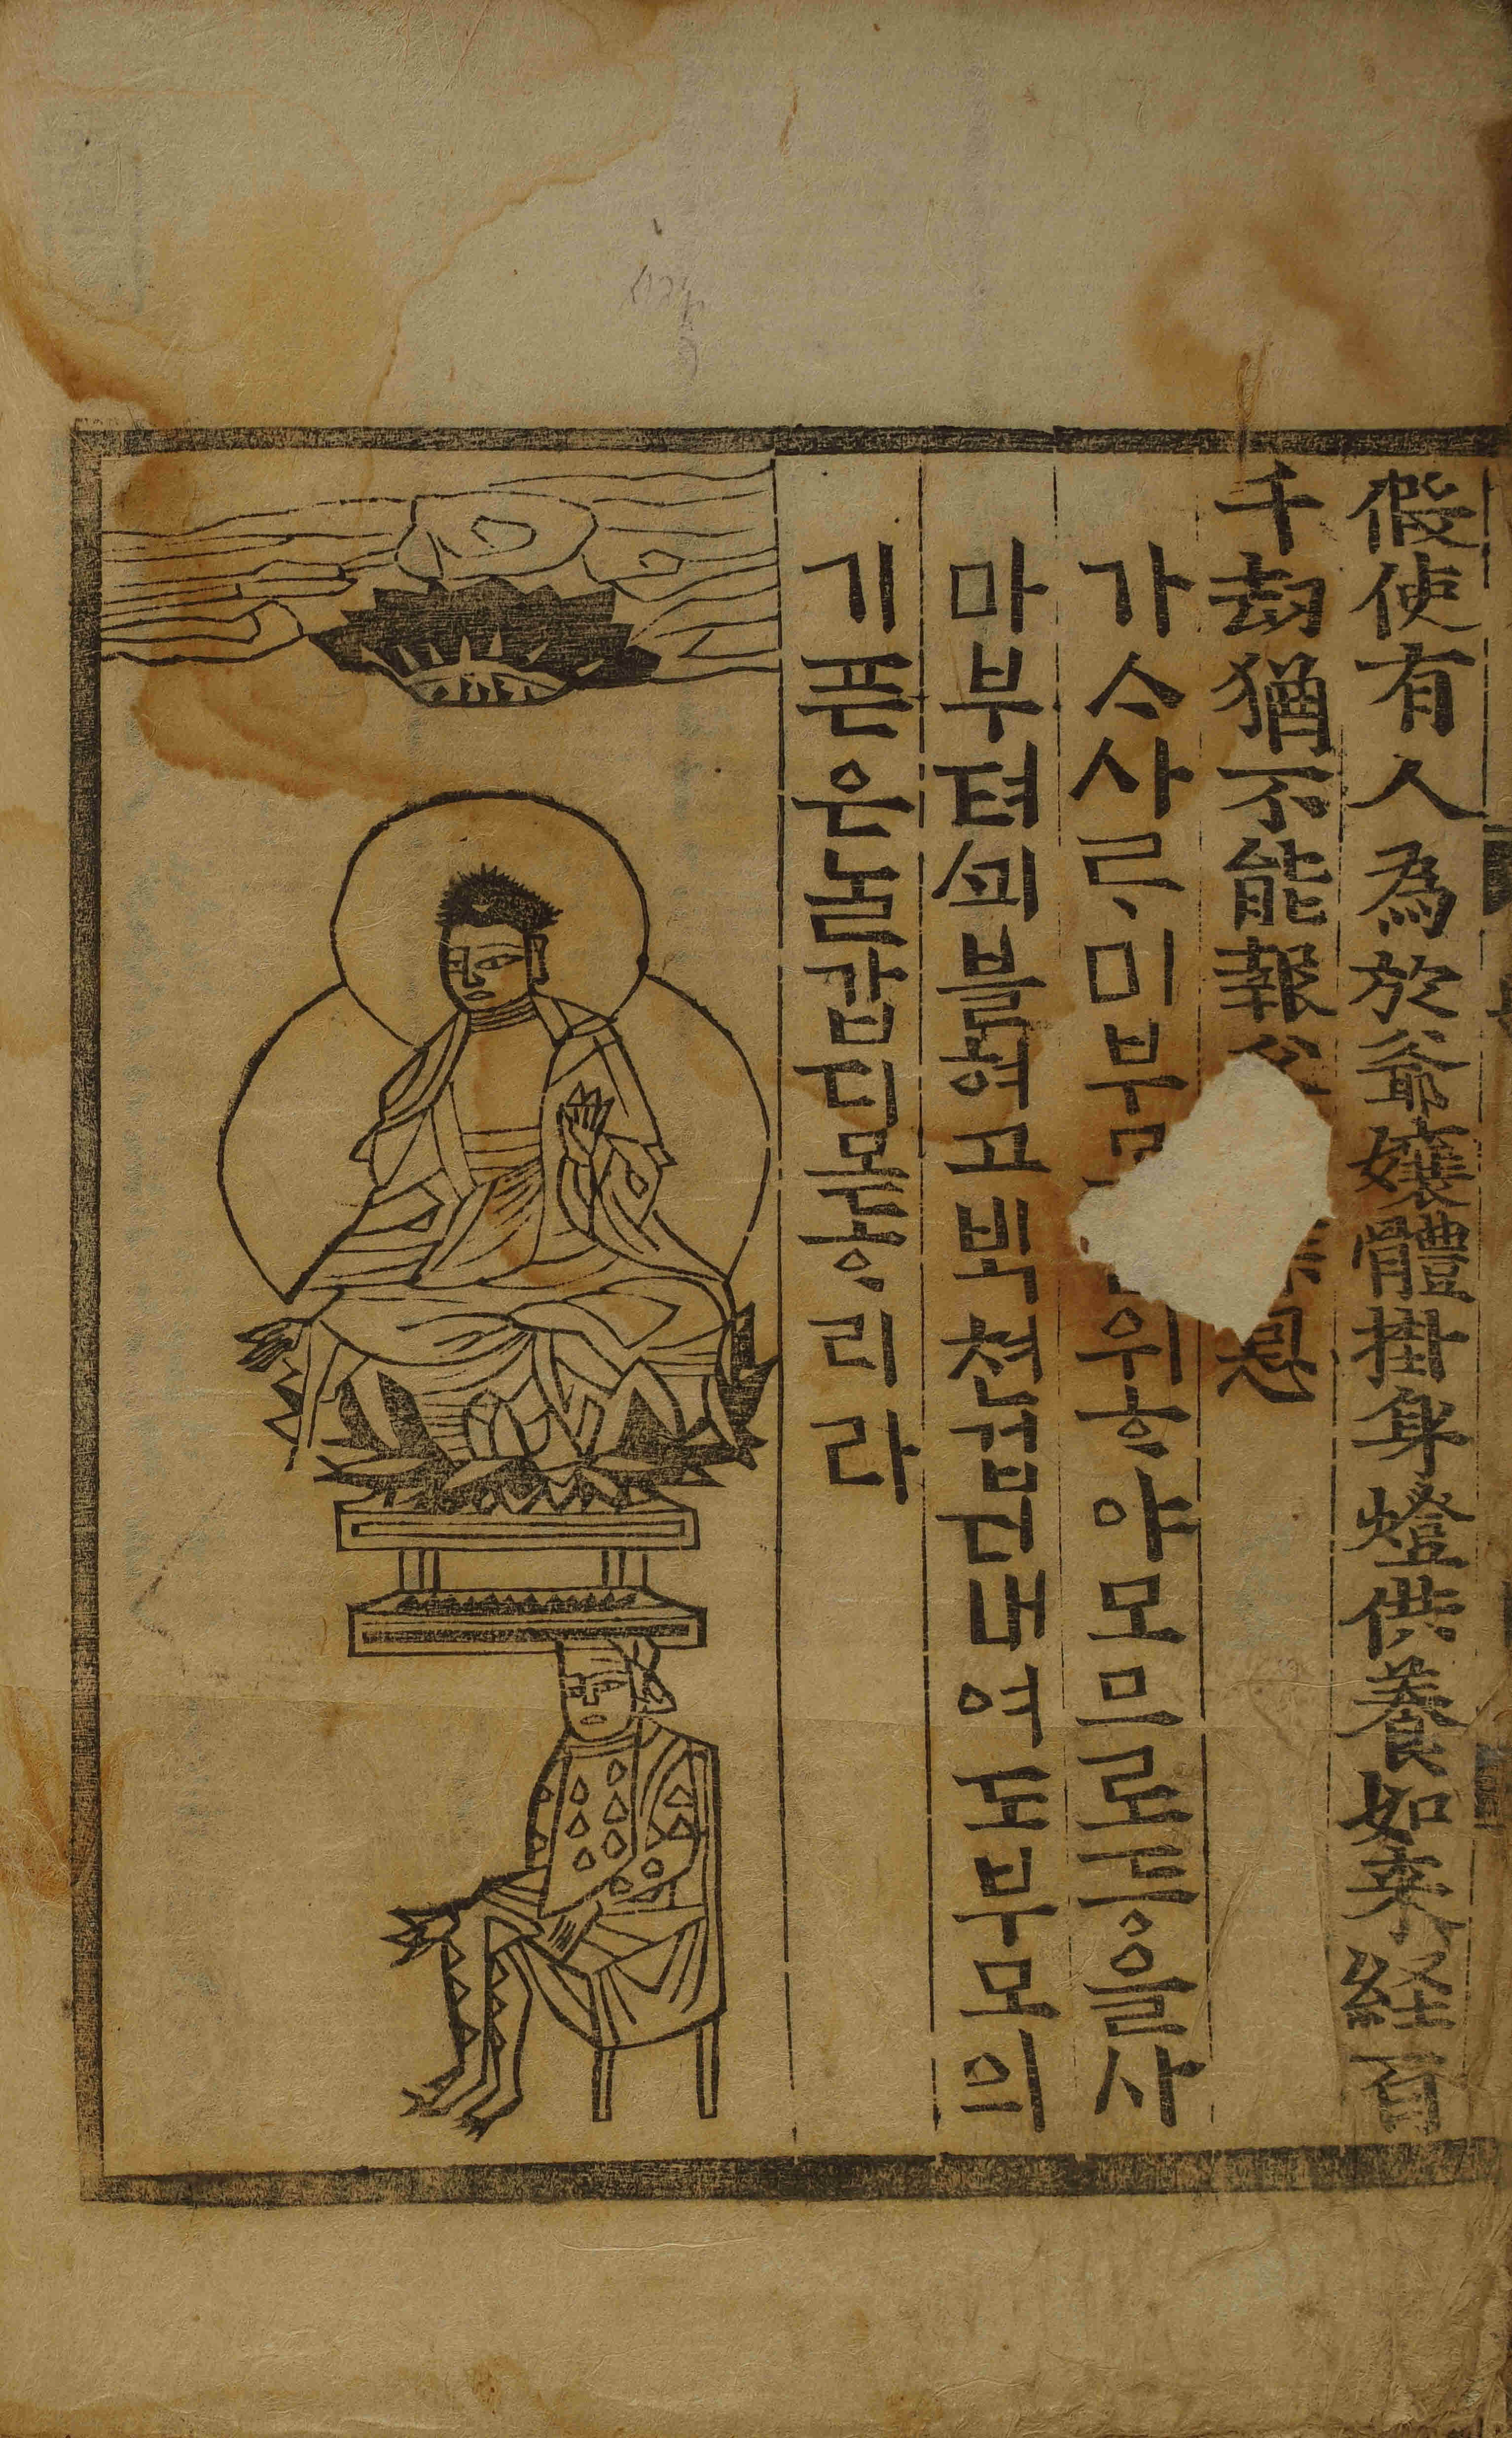 假使有人為於爺孃體掛身燈供養如來経百
千劫猶不能報恩
가ᄉᆞ사ᄅᆞ미부위ᄒᆞ야모므로등을사
마부텨ᄭᅴ블혀고ᄇᆡᆨ쳔겁디내여도부모의
기픈은놀갑디몯ᄒᆞ리라